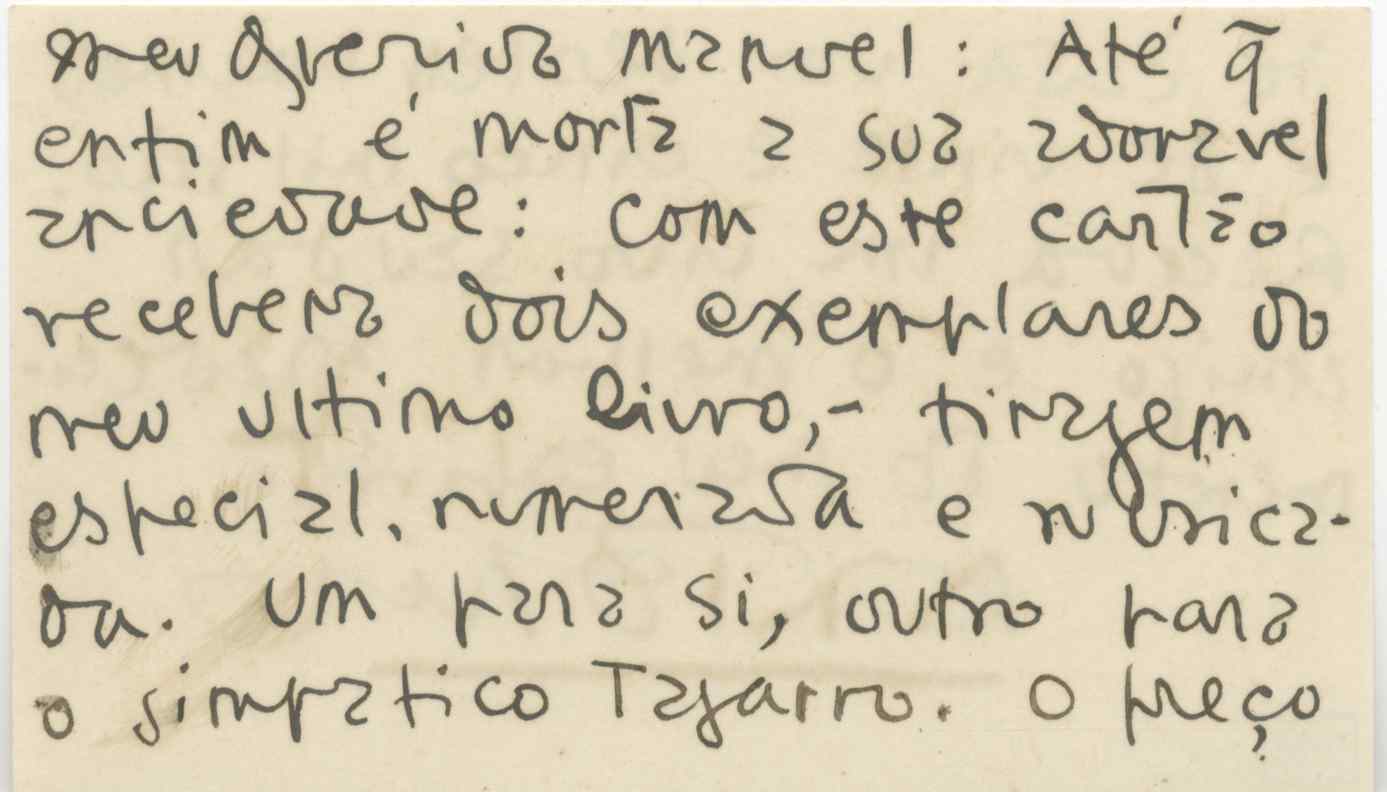 meu Querido Manuel: Até q̃
enfim é morta a sua adoravel
anciedade: com este cartão
recebera dois exemplares do
meu ultimo livro,- tiragem
especial, numerada e rubrica-
da. Um para si, outro para
o simpatico Tagarro. O preço